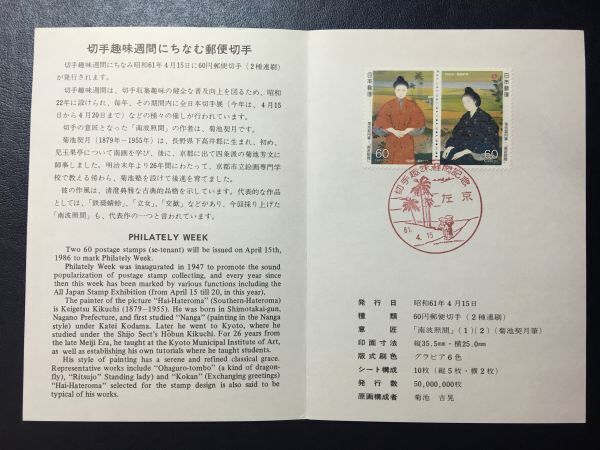 切手趣味週間にちなむ郵便切手
切手趣味週間にちなみ昭和61年4月15日に60円郵便切手（2種連刷）
が発行されます。
切手趣味週間は、切手収集趣味の健全な普及向上を図るため、昭和
22年に設けられ、毎年、その期間内に全日本切手展（今年は、4月15
日から4月20日まで）などの種々の催しが行われています。
切手の意匠となった「南波照間」の作者は、菊池契月です。
菊池契月（1879年－1955年）は、長野県下高井郡に生まれ、初め、
児玉果亭について南画を学び、後に、京都に出て四条派の菊池芳文に
師事しました。明治末年より26年間にわたって、京都市立絵画専門学
校で教える傍わら、菊池塾を設けて後進を育てました。
彼の作風は、清澄典雅な古典的品格を示しています。代表的な作品
としては、「鉄漿蜻蛉」、「立女」、「交歓」などがあり、今回採り上げた
「南波照間」も、代表作の一つと言われています。
PHILATELY WEEK
Two 60 postage stamps (se-tenant) will be issued on April 15th,
1986 to mark Philately Week.
Philately Week was inaugurated in 1947 to promote the sound
popularization of postage stamp collecting, and every year since
then this week has been marked by various functions including the
All Japan Stamp Exhibition (from April 15 till 20, in this year).
The painter of the picture "Hai-Hateroma" (Southern-Hateroma)
is Keigetsu Kikuchi (1879—1955). He was born in Shimotakai-gun,
Nagano Prefecture, and first studied "Nanga" (painting in the Nanga
style) under Katei Kodama. Later he went to Kyoto, where he
studied under the Shijo Sect's Hōbun Kikuchi. For 26 years from
the late Meiji Era, he taught at the Kyoto Municipal Institute of Art,
as well as establishing his own tutorials where he taught students.
His style of painting has a serene and refined classical grace.
Representative works include "Ohaguro-tombo" (a kind of dragon-
fly), "Ritsujo" Standing lady) and "Kokan" (Exchanging greetings)
"Hai-Hateroma" selected for the stamp design is also said to be
typical of his works.
日本郵便
60
60
日本郵便
切手趣味週間記念
左京
61.
4.15
発行日 昭和61年4月15日
種類 60円郵便切手（2種連刷）
意匠 「南波照間」（1）（2）（菊池契月筆）
印面寸法 縦35.5mm・横25.0mm
版式刷色 グラビア6色
シート構成 10枚（縦5枚・横2枚）
発行数 50,000,000枚
原画構成者 菊池 吉晃